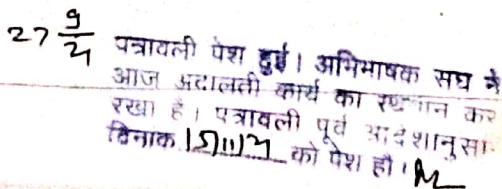 27 9/24 पत्रावली पेश हुई। अभिभाषक संघ ने
आज अदालती कार्य का स्थगन कर
रखा है। पत्रावली पूर्व आदेशानुसा
दिनाक को पेश हो।